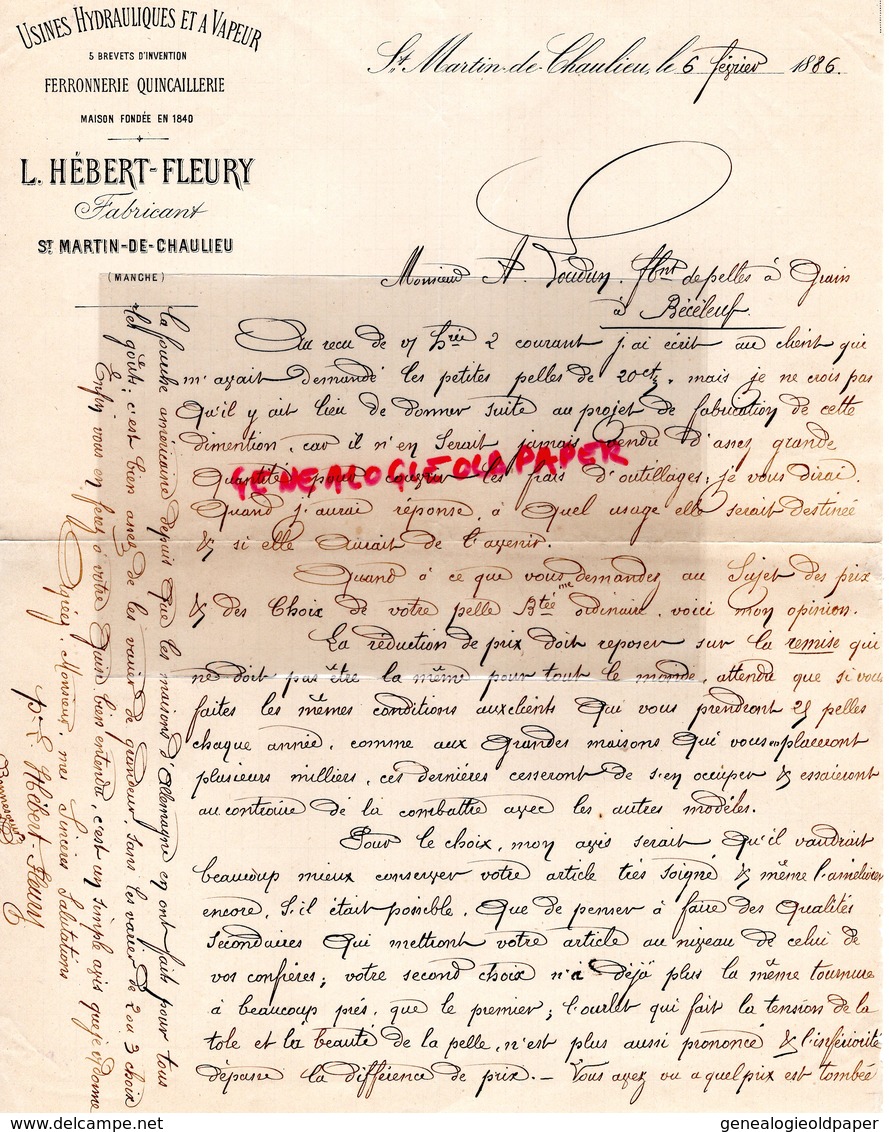 USINES HYDRAULIQUES ET A VAPEUR
5 BREVETS D'INVENTION
FERRONNERIE QUINCAILLERIE
MAISON FONDÉE EN 1840
L. HÉBERT-FLEURY
Fabricant
ST MARTIN-DE-CHAULIEU
(MANCHE)
St. Martin-de-Chaulieu, le 6 février 1886.
Monsieur A. Loudun. fbnt de pelles à Grain
à Béceleuf.
Au recu de v/ hrée 2 courant j'ai écrit au client qui
m'avait demandé les petites pelles de 20ctz, mais je ne crois pas
qu'il y ait lieu de donner suite au projet de fabrication de cette
dimention, car il n'en serait jamais vendu d'assez grande
quantité pour couvrir les frais d'outillages; je vous dirai.
GENEALOGIEOLDPAPER
Quand j'aurai réponse, à quel usage elle serait destinée
& si elle aurait de l'avenir.
Quand à ce que vous me demandez au Sujet des prix
& des Choix de votre pelle Btée ordinaire, voici mon opinion.
La réduction de prix, doit reposer sur la remise qui
ne doit pas être la même pour tout le monde, attendu que si vous
faites les mêmes conditions aux clients qui vous prendront 25 pelles
chaque année, comme aux Grandes maisons qui vous en placeront
plusieurs milliers, ces dernières cesseront de s'en occuper & essaieront
au contraire de la combattre avec les autres modèles.
Pour le choix, mon avis serait qu'il vaudrait
beaucoup mieux conserver votre article très soigné & même l'améliorer
encore, s'il était possible, que de penser à faire des qualités
secondaires qui mettront votre article au niveau de celui de
vos confrères; votre second choix n'a déjà plus la même tournure
à beaucoup près, que le premier; l'ourlet qui fait la tension de la
tole et la beauté de la pelle, n'est plus aussi prononcé & l'infériorité
dépasse la différence de prix. — Vous avez vu a quel prix est tombée
la fourche américaine depuis que les maisons d'Allemagne en ont fait pour tous
les goûts; c'est bien assez de les varier de grandeur, sans les varier de 2 ou 3 choix
Enfin vous en ferez à votre Guise bien entendu, c'est un simple avis que je v/ donne
Agréez, Monsieur, mes Sincères Salutations
pr L Hébert-Fleury
delcampe.net
genealogieoldpaper